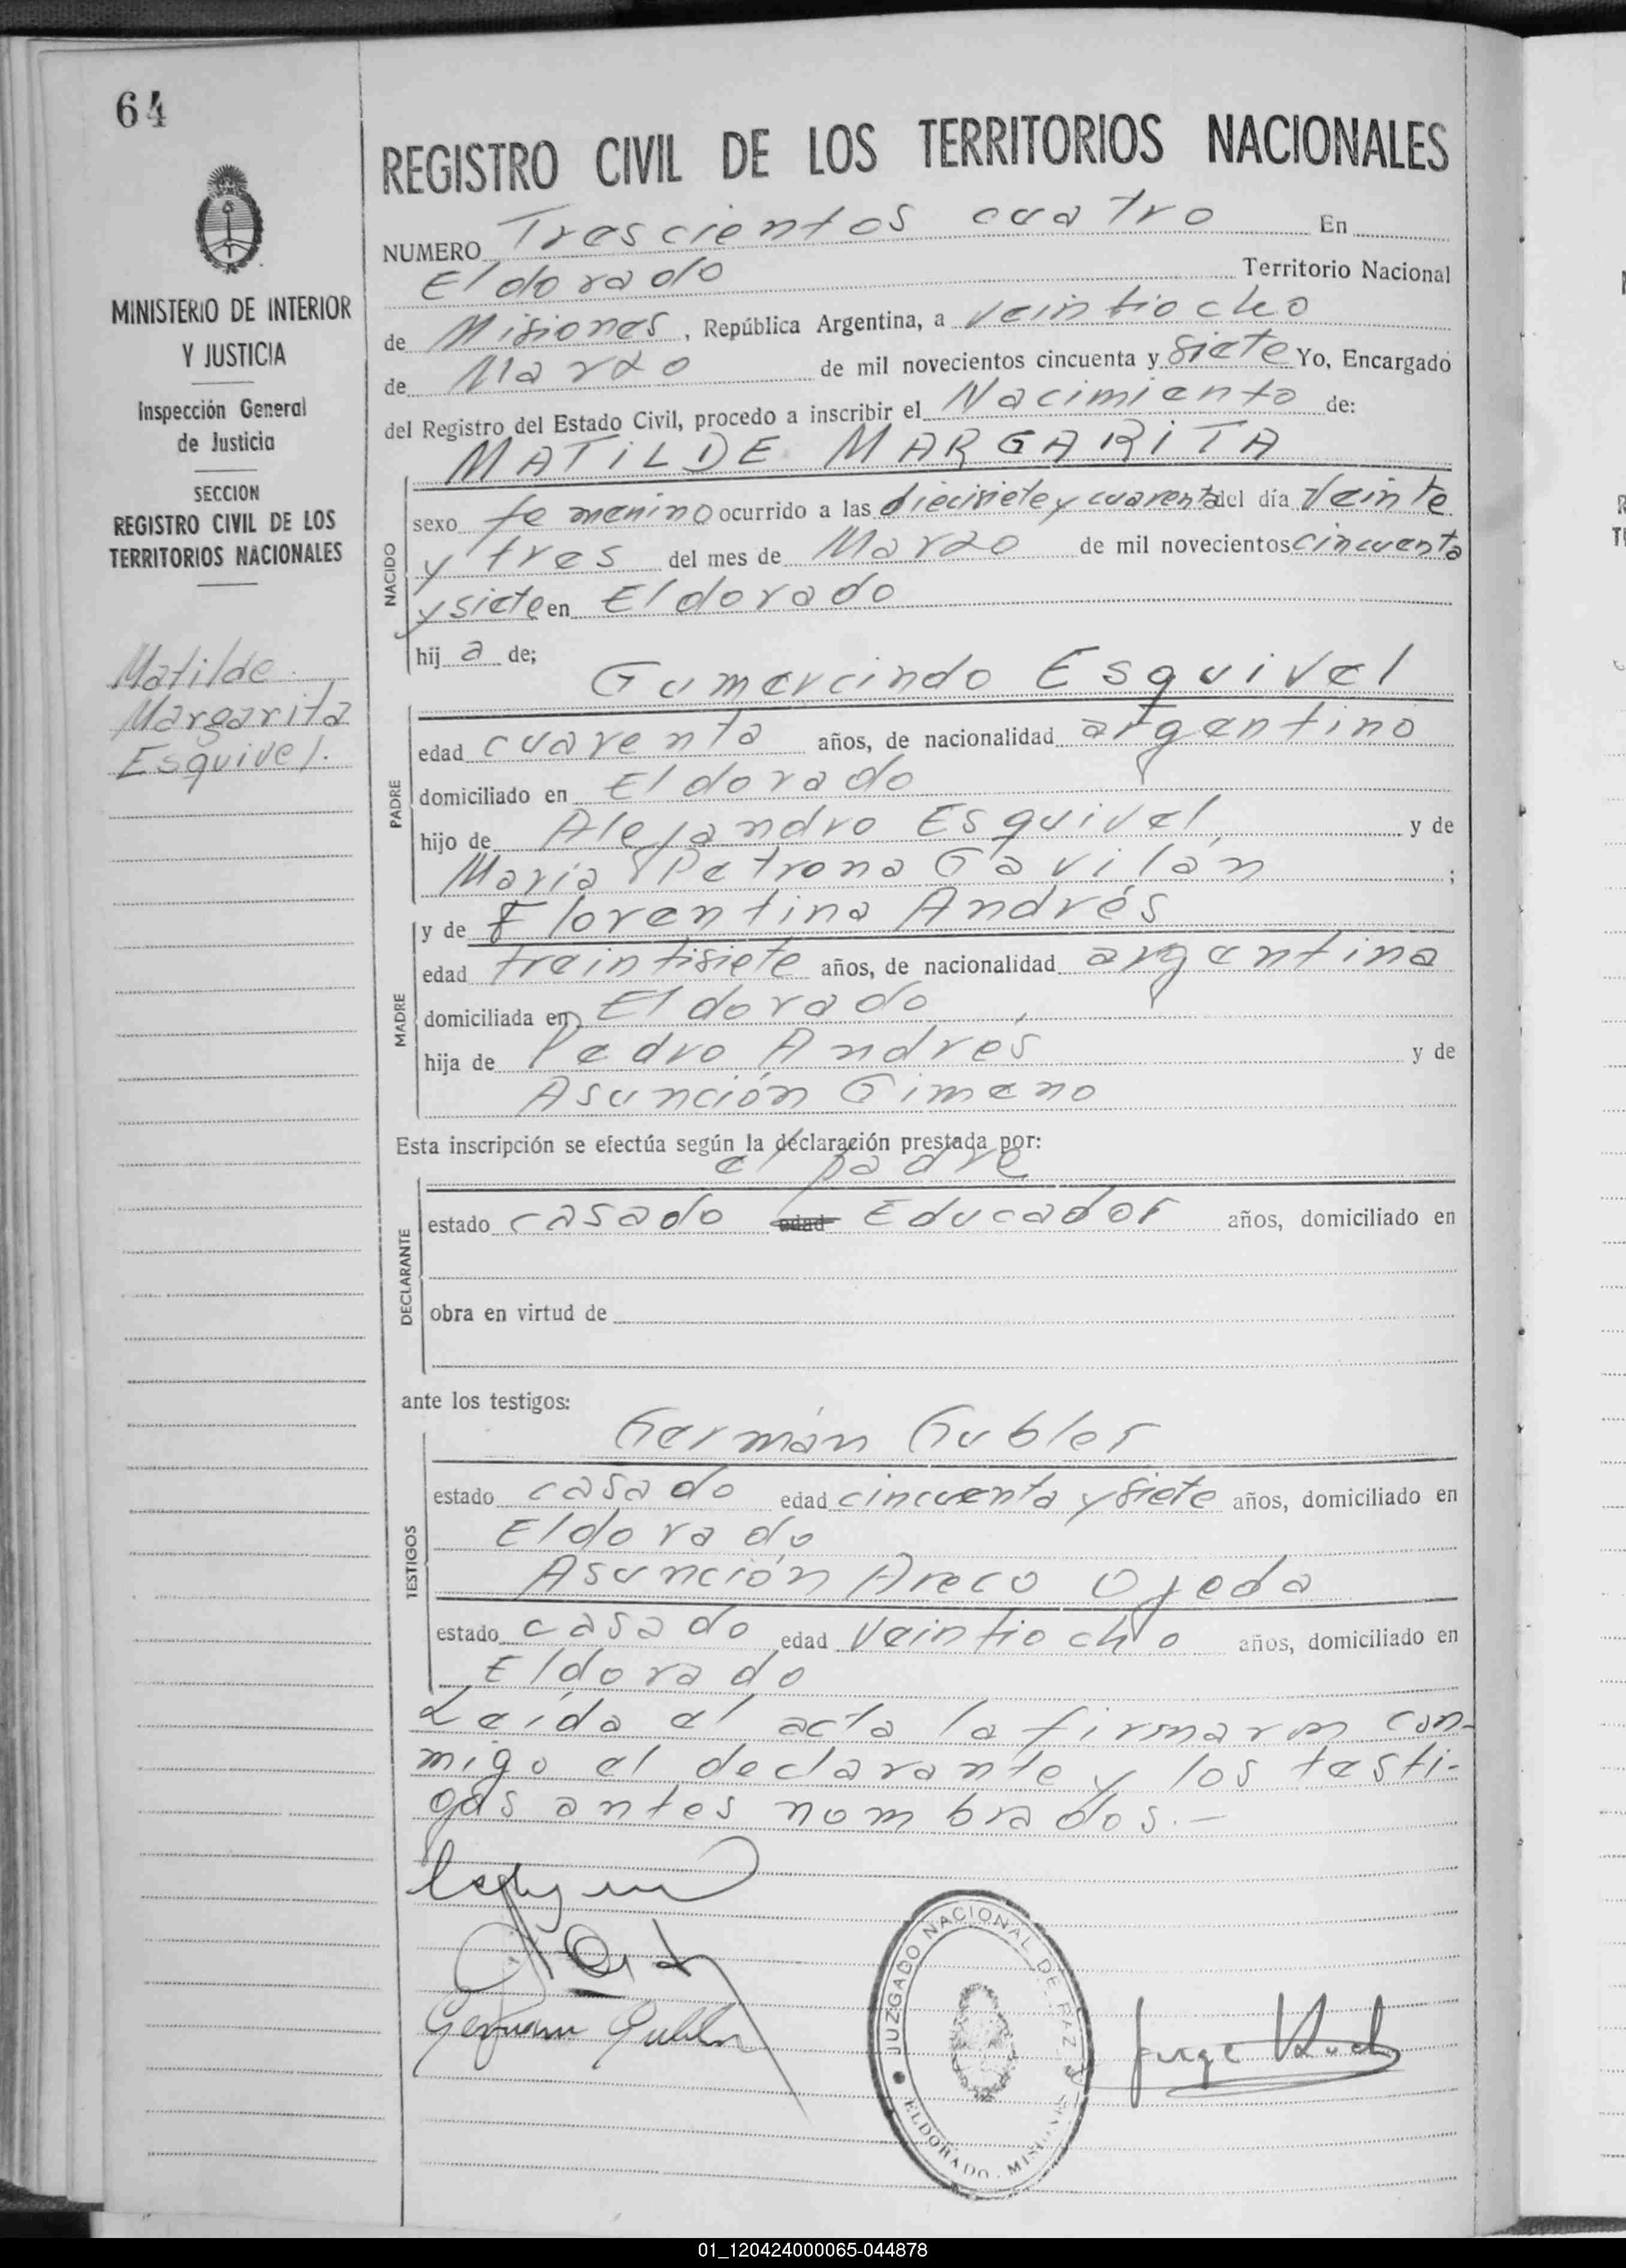 64
MINISTERIO DE INTERIOR
Y JUSTICIA
Inspección General
de Justicia
SECCION
REGISTRO CIVIL DE LOS
TERRITORIOS NACIONALES
Matilde
Margarita
Esquivel.
REGISTRO CIVIL DE LOS TERRITORIOS NACIONALES
NUMERO Trescientos cuatro En
Eldorado Territorio Nacional
de Misiones, República Argentina, a veintiocho
de Marzo de mil novecientos cincuenta y siete Yo, Encargado
del Registro del Estado Civil, procedo a inscribir el Nacimiento de:
MATILDE MARGARITA
NACIDO
sexo femenino ocurrido a las diecisiete y cuarenta del día veinte
y tres del mes de Marzo de mil novecientos cincuenta
y siete en Eldorado
hij a de;
Gumercindo Esquivel
PADRE
edad cuarenta años, de nacionalidad argentino
domiciliado en Eldorado
hijo de Alejandro Esquivel, y de
María Petrona Gavilán ;
y de Florentina Andrés
MADRE
edad treintisiete años, de nacionalidad argentina
domiciliada en Eldorado
hija de Pedro Andrés y de
Asunción Gimeno
Esta inscripción se efectúa según la declaración prestada por:
el padre
DECLARANTE
estado casado edad Educador años, domiciliado en
obra en virtud de
ante los testigos:
Germán Gubler
TESTIGOS
estado casado edad cincuenta y siete años, domiciliado en
Eldorado
Asunción Areco Ojeda
estado casado edad veintiocho años, domiciliado en
Eldorado
Leída el acta la firmaron con-
migo el declarante y los testi-
gos antes nombrados.-
Germann Gubler
JUZGADO NACIONAL DE PAZ
ELDORADO - MISIONES
Jorge
01_120424000065-044878